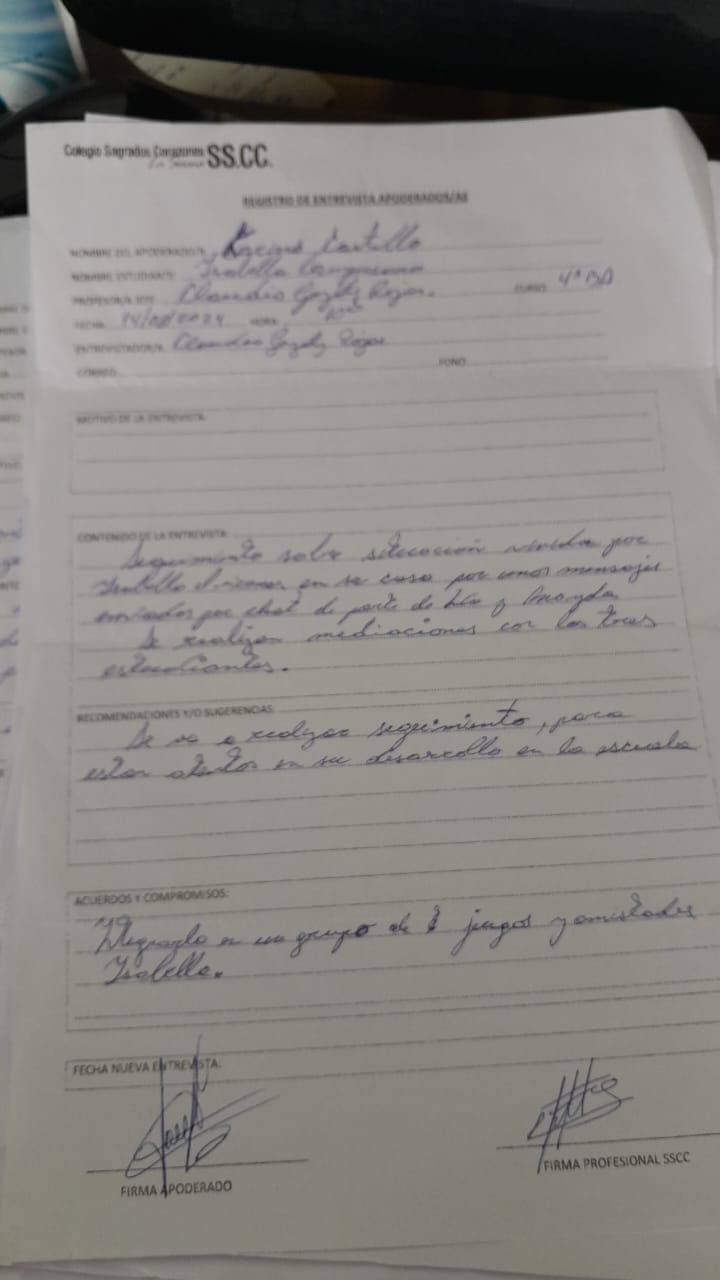 Colegio Sagrados Corazones SS.CC.
REGISTRO DE ENTREVISTA APODERADOS/AS
NOMBRE DEL APODERADO/A Castillo
NOMBRE ESTUDIANTE Isabella
PROFESOR/A JEFE Claudia Rojas. CURSO 4° BA
FECHA 14/08/2024 HORA
ENTREVISTADOR/A Claudia Rojas
CORREO FONO
MOTIVO DE LA ENTREVISTA
CONTENIDO DE LA ENTREVISTA
Seguimiento sobre situación vivida por
Isabella en su casa por unos mensajes
enviados por chat de parte de y
Se realizan mediaciones con las tres
estudiantes.
RECOMENDACIONES Y/O SUGERENCIAS
Se va a realizar seguimiento, para
estar atentos en su desarrollo en la escuela
ACUERDOS Y COMPROMISOS:
Integrarla en un grupo de juegos y amistades
Isabella.
FECHA NUEVA ENTREVISTA:
FIRMA APODERADO
FIRMA PROFESIONAL SSCC